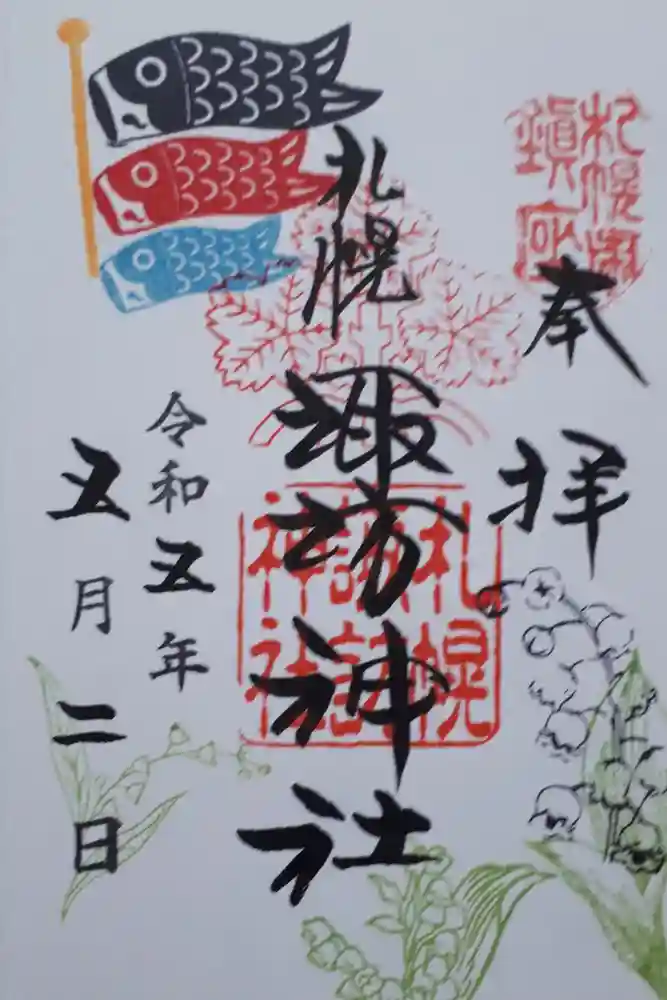 札幌市
鎮座
奉拝
札幌諏訪神社
札幌
諏訪
神社
令和五年
五月二日